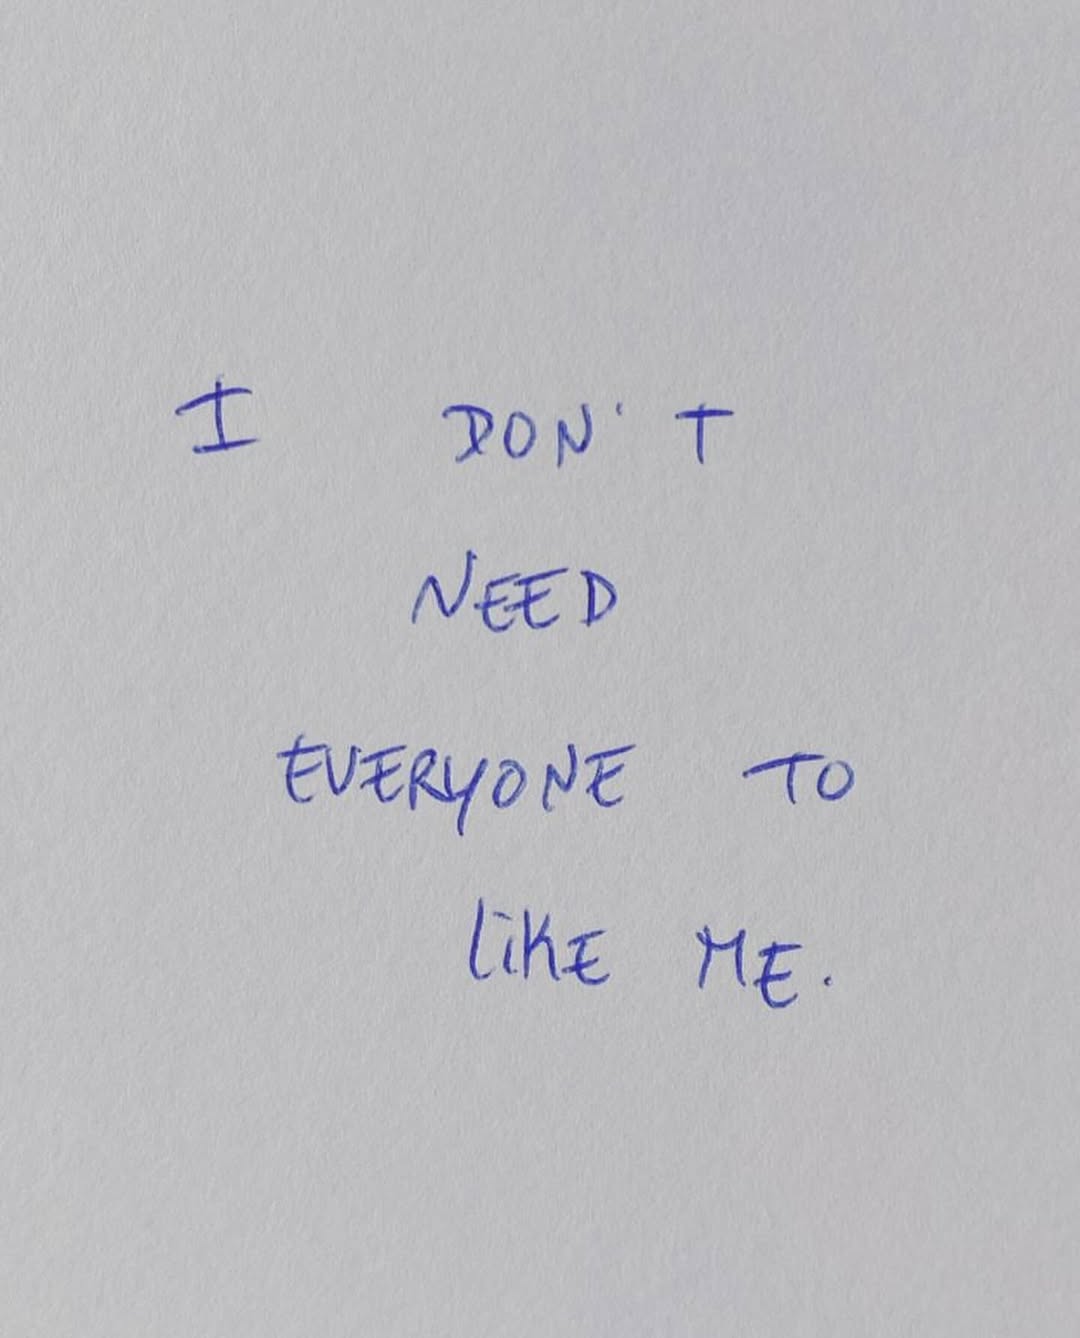 I DON'T
NEED
EVERYONE TO
liKE ME.